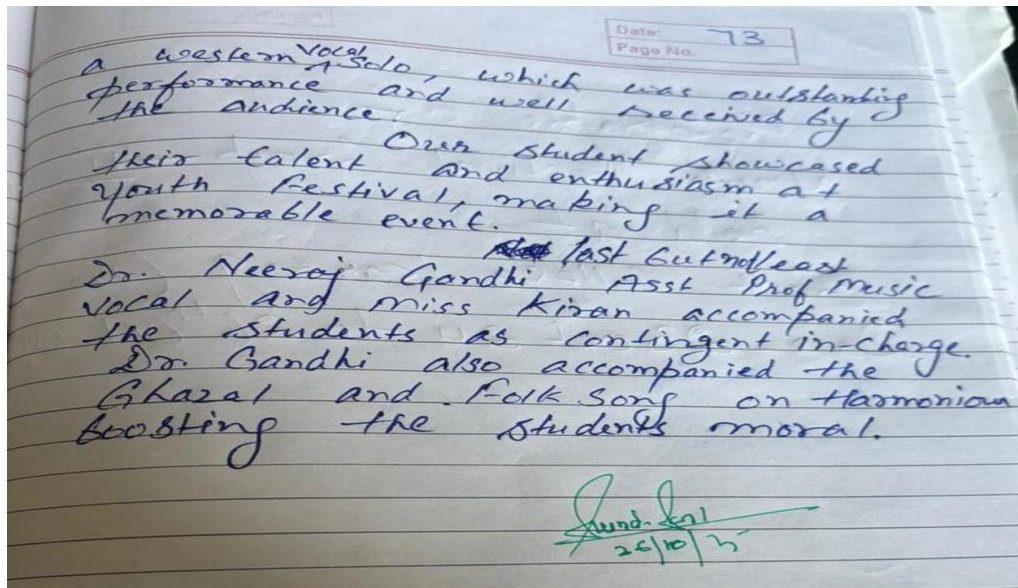 Date: 73
Page No.
a western vocal solo, which was outstanding
performance and well received by
the audience.
Our student showcased
their talent and enthusiasm at
youth festival, making it a
memorable event.
last but not least
Dr. Neeraj Gandhi Asst Prof Music
vocal and miss Kiran accompanied
the students as contingent in-charge.
Dr. Gandhi also accompanied the
Ghazal and Folk song on Harmonium
boosting the students moral.